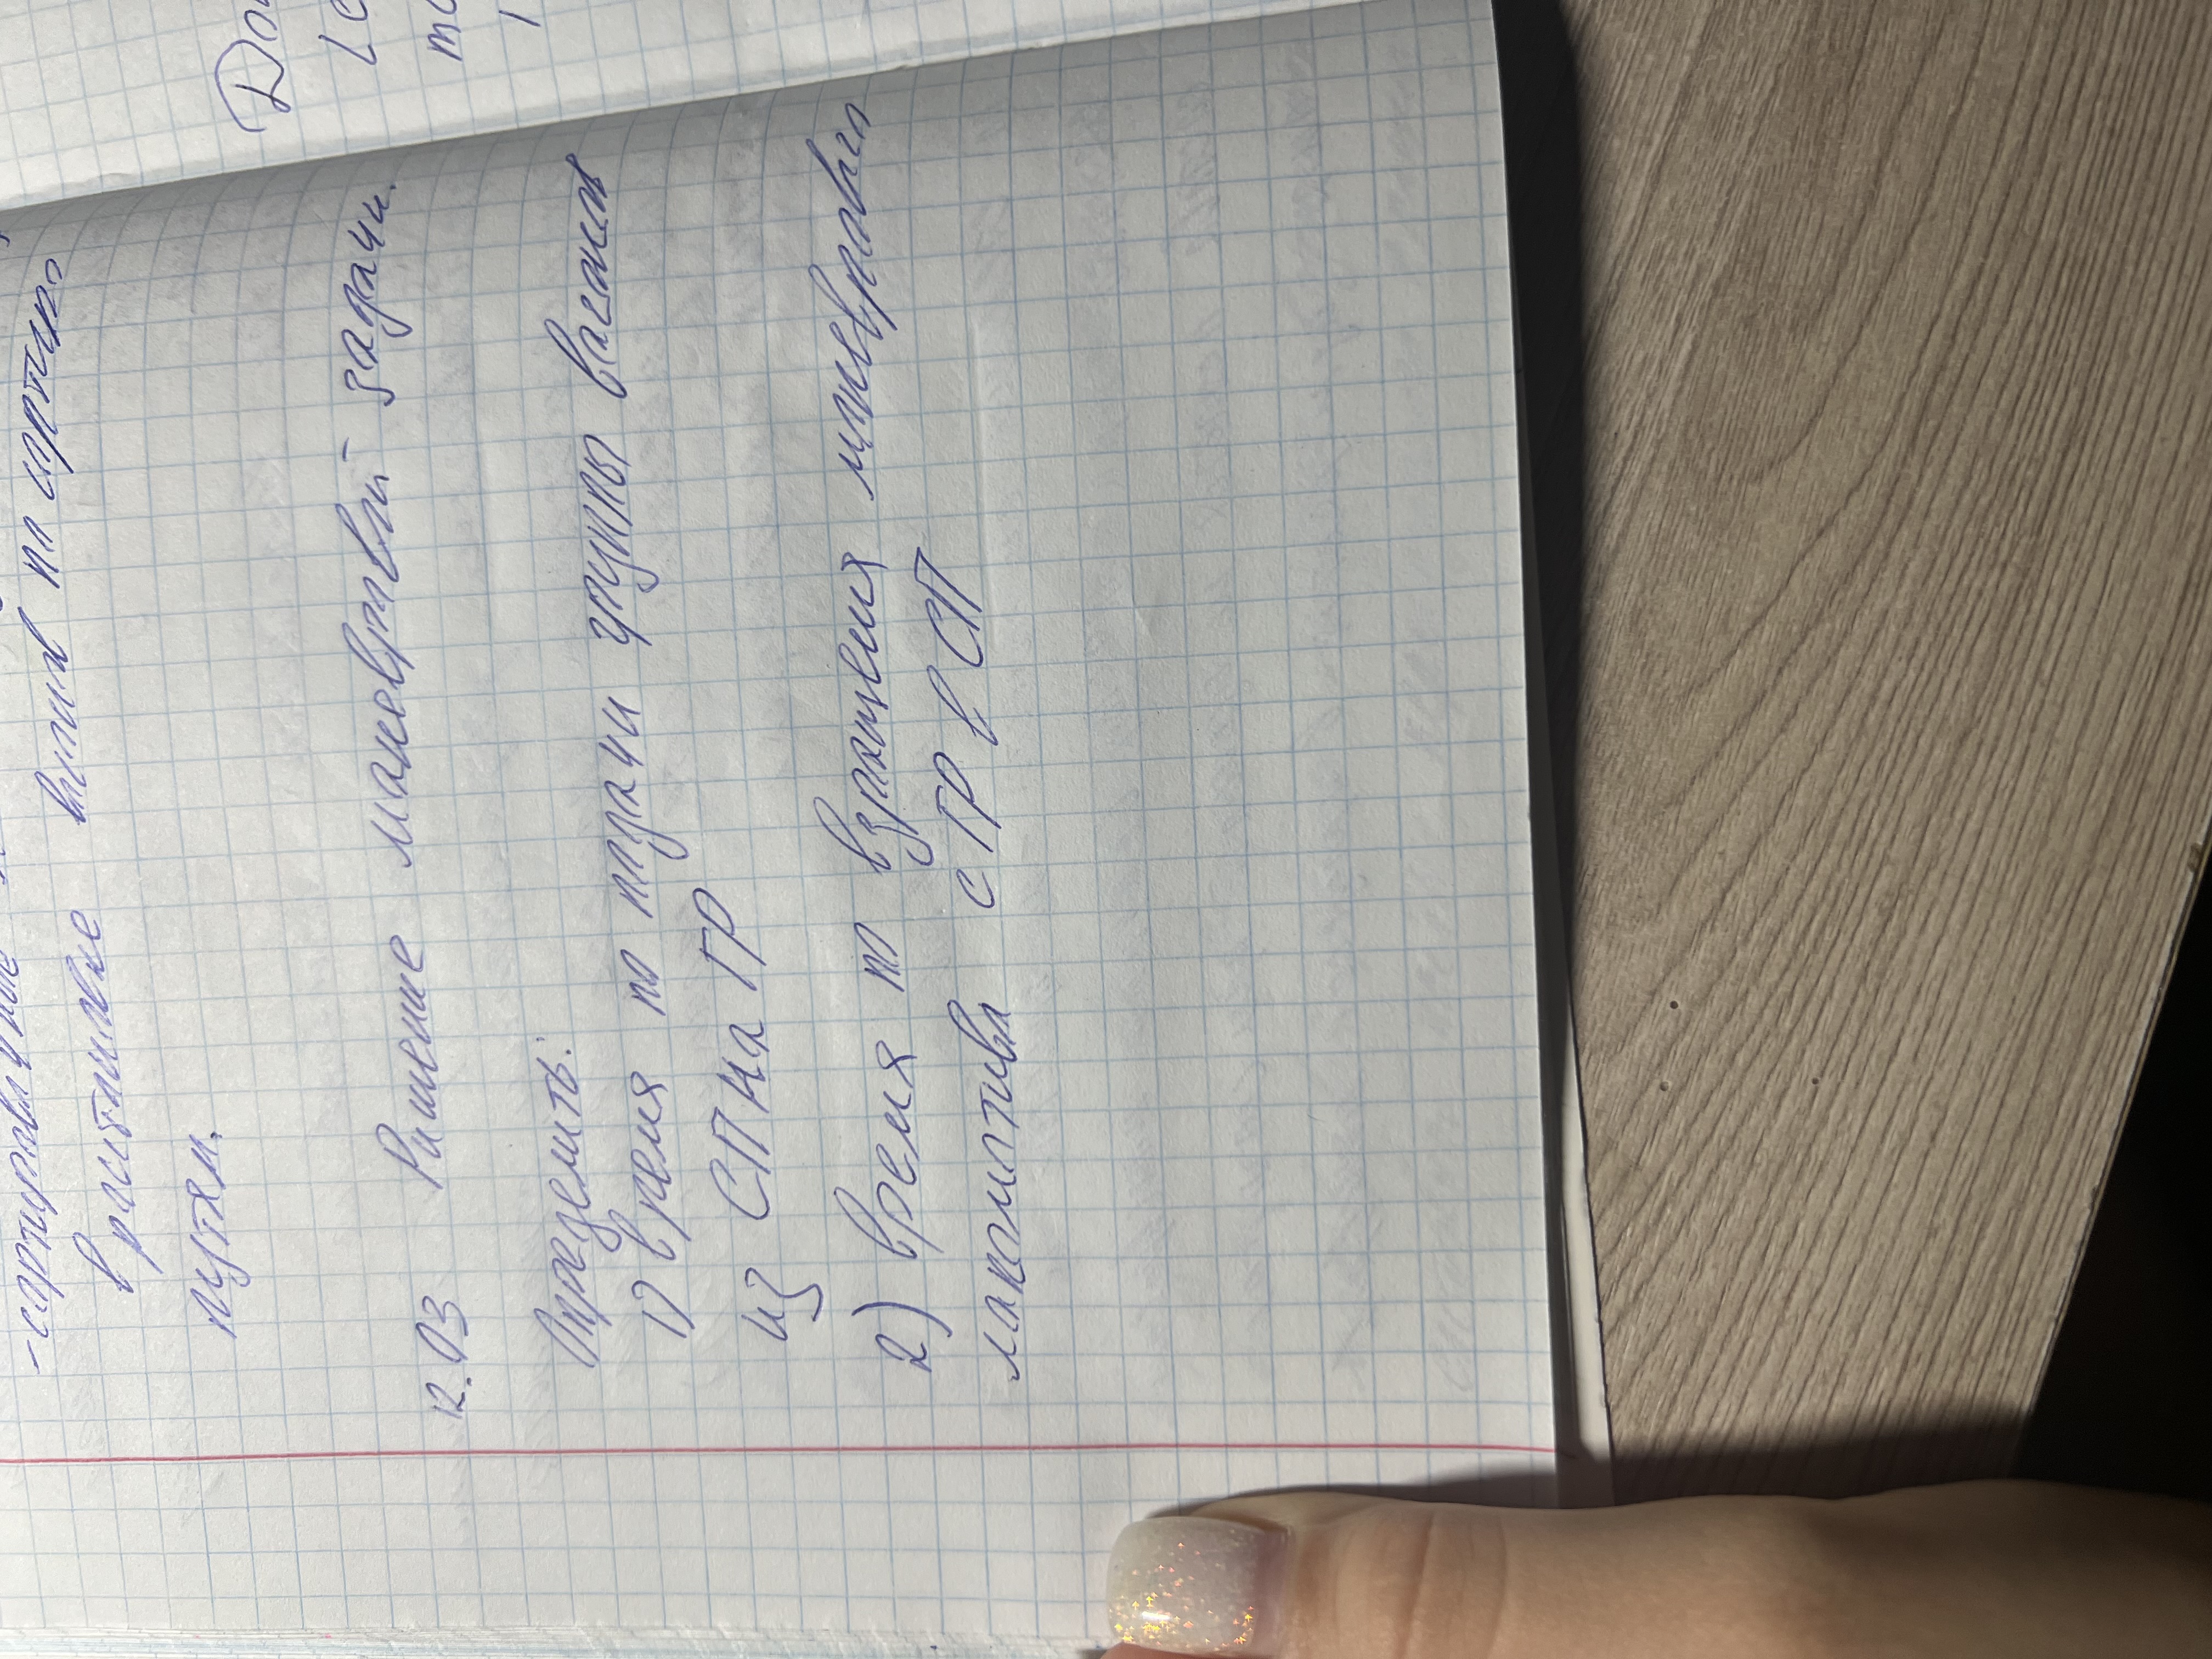 - сортировач
в расстановке вагонов по сортиро
путям.
12.03 Решение маневровой задачи.
Определить:
1) время по подачи группы вагонов
из СП на ГР
2) время по взращения маневрового
локомотива с ГР в СП
До